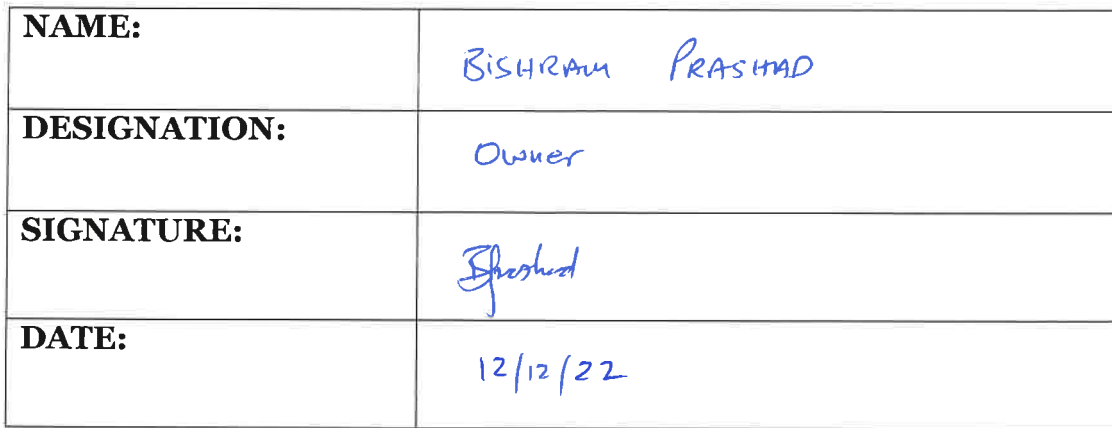 NAME: BISHRAM PRASHAD
DESIGNATION: Owner
SIGNATURE: BPrashad
DATE: 12/12/22